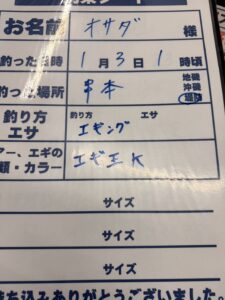 お名前 オサダ 様
釣った日時 1月3日1時頃
釣った場所 串本 地磯 沖磯 堤防
釣り方 エサ 釣り方 エサ
エギング
アー、エギの
類・カラー エギ王 K
サイズ
サイズ
サイズ
ち込みありがとうございました。